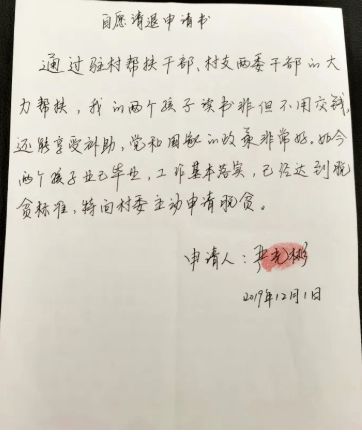 自愿请退申请书
通过驻村帮扶干部、村支两委干部的大
力帮扶,我的两个孩子读书非但不用交钱,
还能享受补助,党和国家的政策非常好。如今
两个孩子业已毕业,工作基本落实,已经达到脱
贫标准,特向村委主动申请脱贫。
申请人:
2019年12月1日